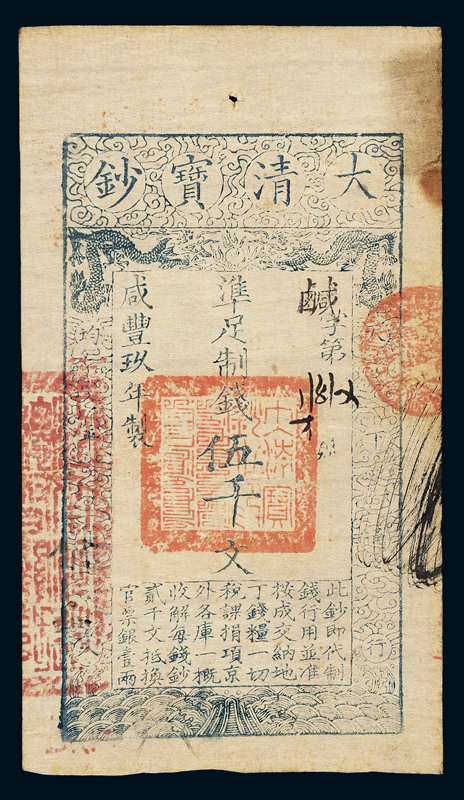 大清寶鈔
天下行
鹹字第
準足制錢伍千文
咸豐玖年製
均
此鈔即代制
錢行用並准
按成交納地
丁錢糧一切
稅課捐項京
外各庫一概
收解每錢鈔
貳千文抵換
官票銀壹兩